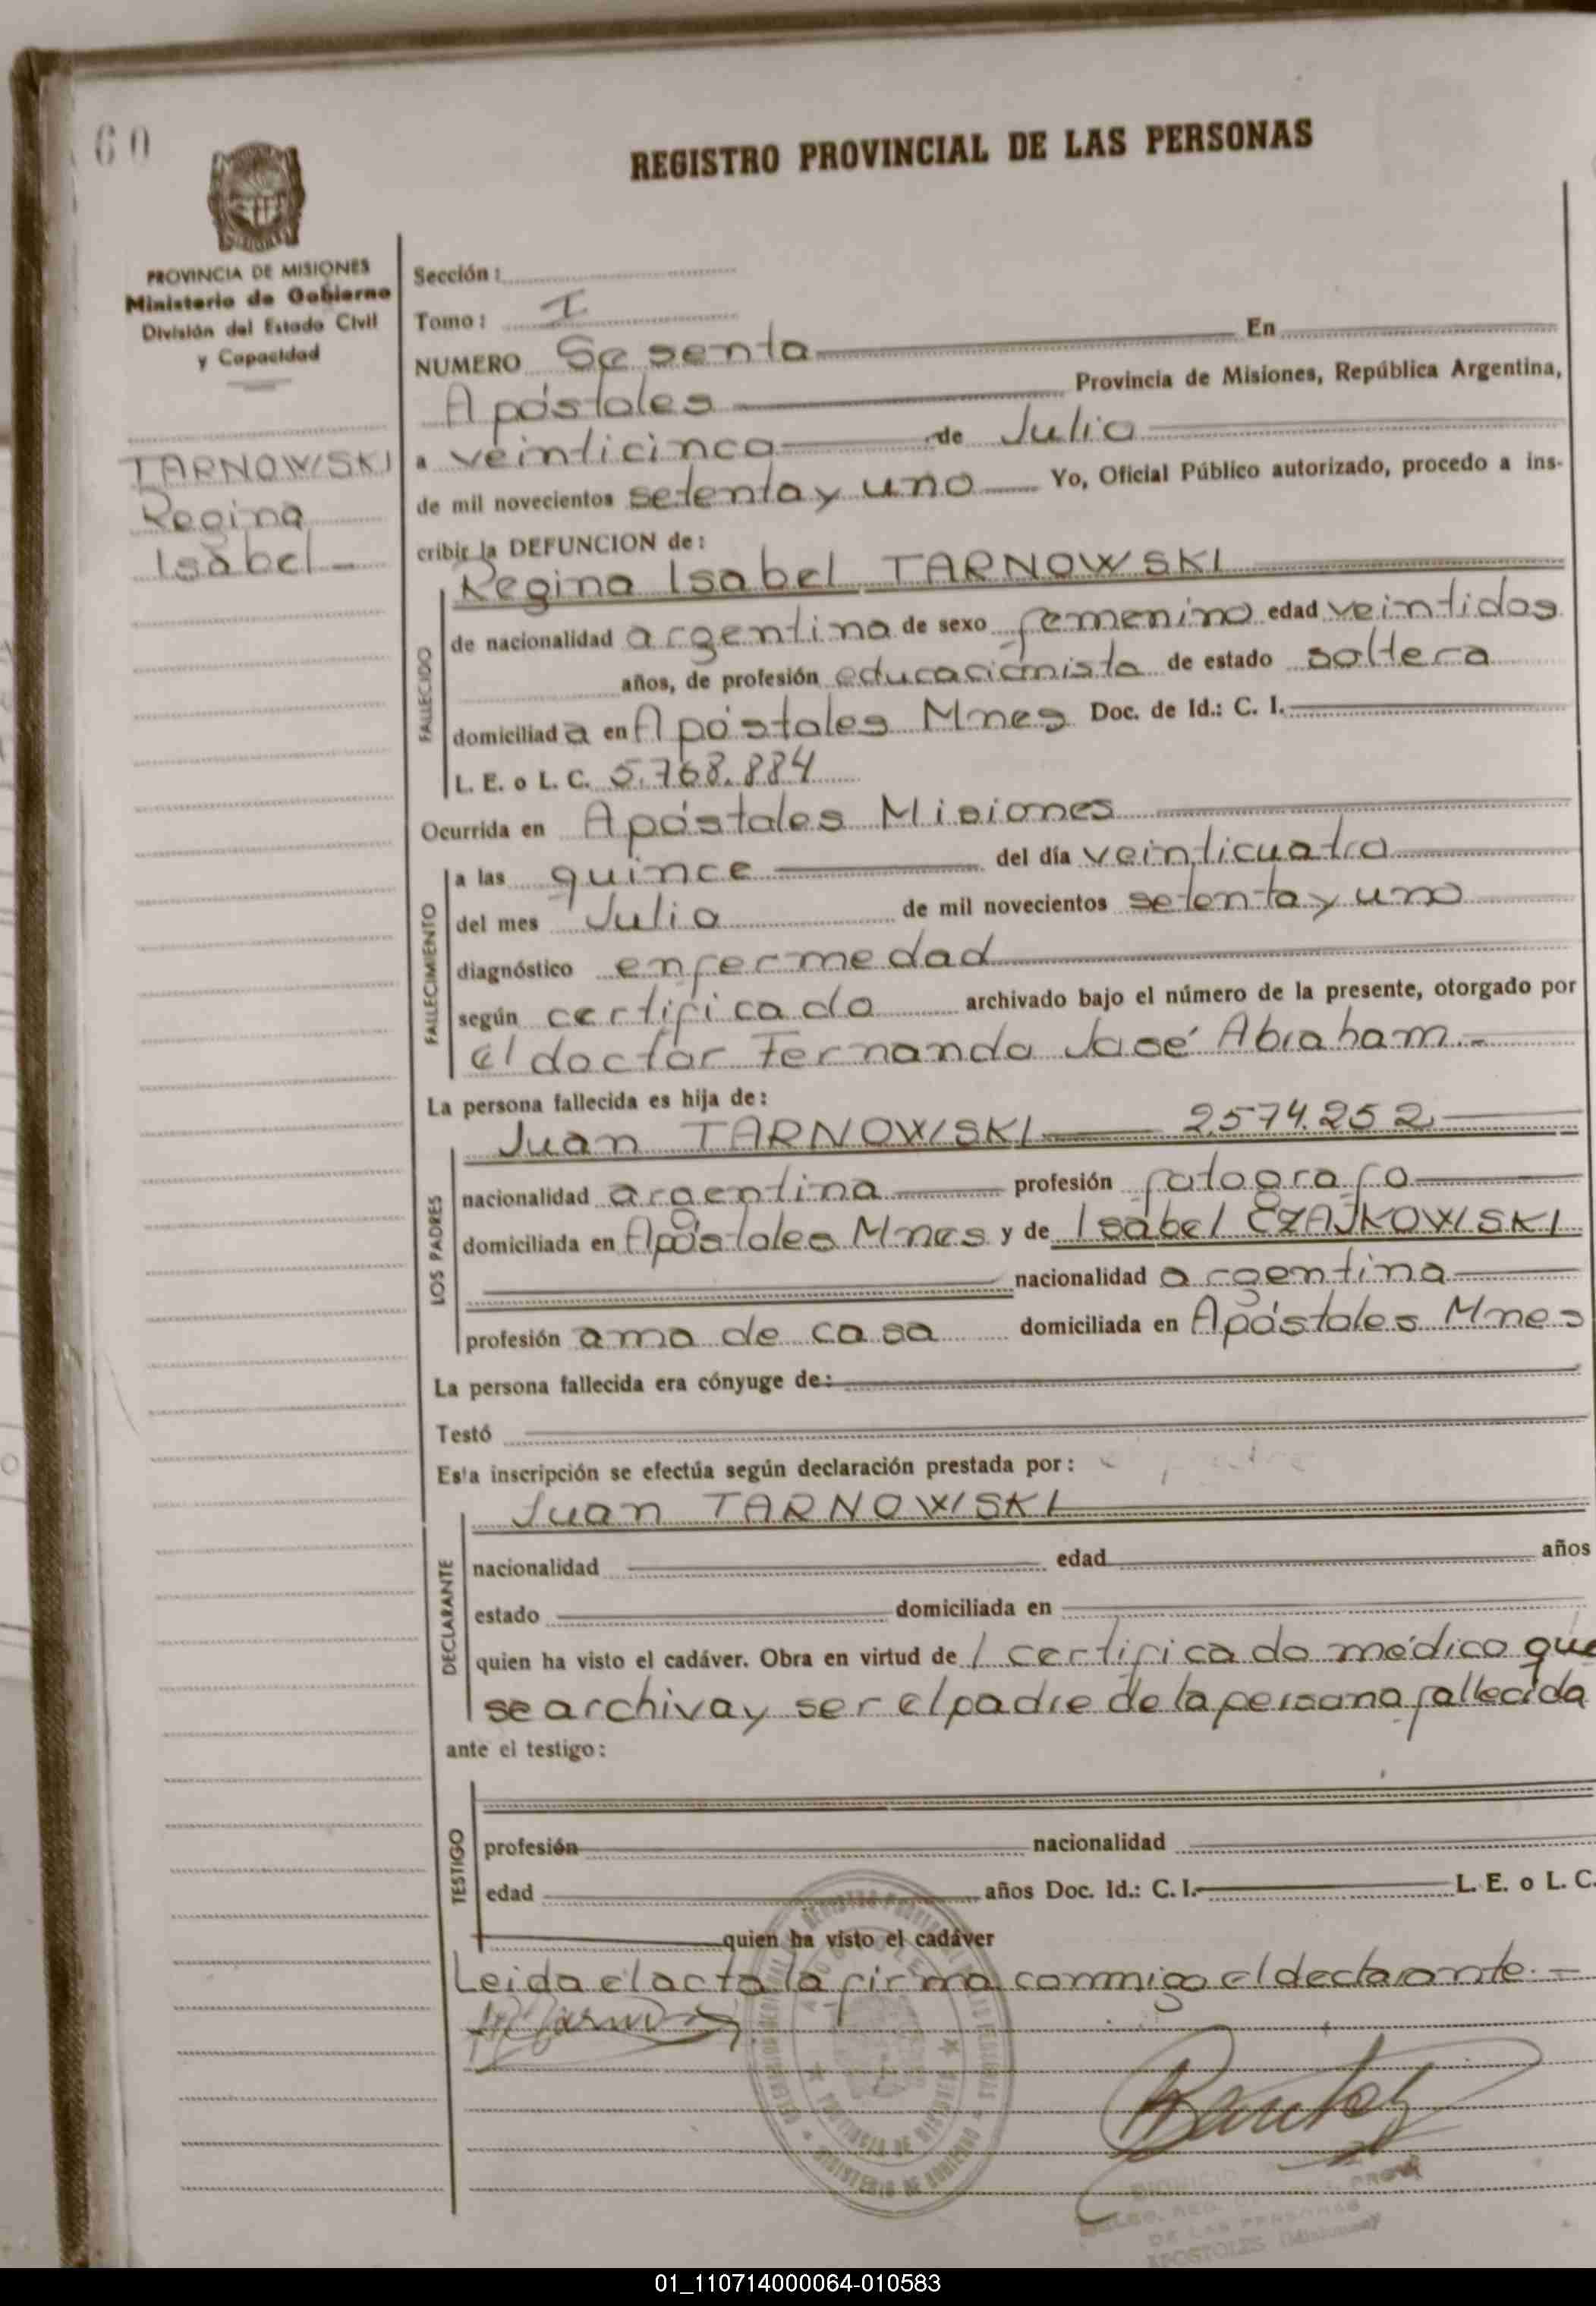 60
REGISTRO PROVINCIAL DE LAS PERSONAS
PROVINCIA DE MISIONES
Ministerio de Gobierno
División del Estado Civil
y Capacidad
TARNOWSKI
Regina
Isabel-
Sección:
Tomo: I
NUMERO Sesenta En
Apóstoles Provincia de Misiones, República Argentina,
a veinticinco de Julio
de mil novecientos setenta y uno Yo, Oficial Público autorizado, procedo a ins-
cribir la DEFUNCION de:
Regina Isabel TARNOWSKI
FALLECIDO
de nacionalidad argentina de sexo femenino edad veintidos
años, de profesión educacionista de estado soltera
domiciliada en Apóstoles Mnes Doc. de Id.: C. I.
L. E. o L. C. 5.768.884
Ocurrida en Apóstoles Misiones
FALLECIMIENTO
a las quince del día veinticuatro
del mes Julio de mil novecientos setenta y uno
diagnóstico enfermedad
según certificado archivado bajo el número de la presente, otorgado por
el doctor Fernando José Abraham.-
La persona fallecida es hija de:
Juan TARNOWSKI 2.574.252
LOS PADRES
nacionalidad argentina profesión fotografo
domiciliada en Apóstoles Mnes y de Isabel CZAJKOWSKI
nacionalidad argentina
profesión ama de casa domiciliada en Apóstoles Mnes
La persona fallecida era cónyuge de:
Testó
Esta inscripción se efectúa según declaración prestada por:
Juan TARNOWSKI
DECLARANTE
nacionalidad edad años
estado domiciliada en
quien ha visto el cadáver. Obra en virtud de 1 certificado médico que
se archiva y ser el padre de la persona fallecida
ante el testigo:
TESTIGO
profesión nacionalidad
edad años Doc. Id.: C. I. L. E. o L. C.
quien ha visto el cadáver
Leida el acta la firma conmigo el declarante.-
DE LAS PERSONAS
APOSTOLES (Misiones)
01_110714000064-010583